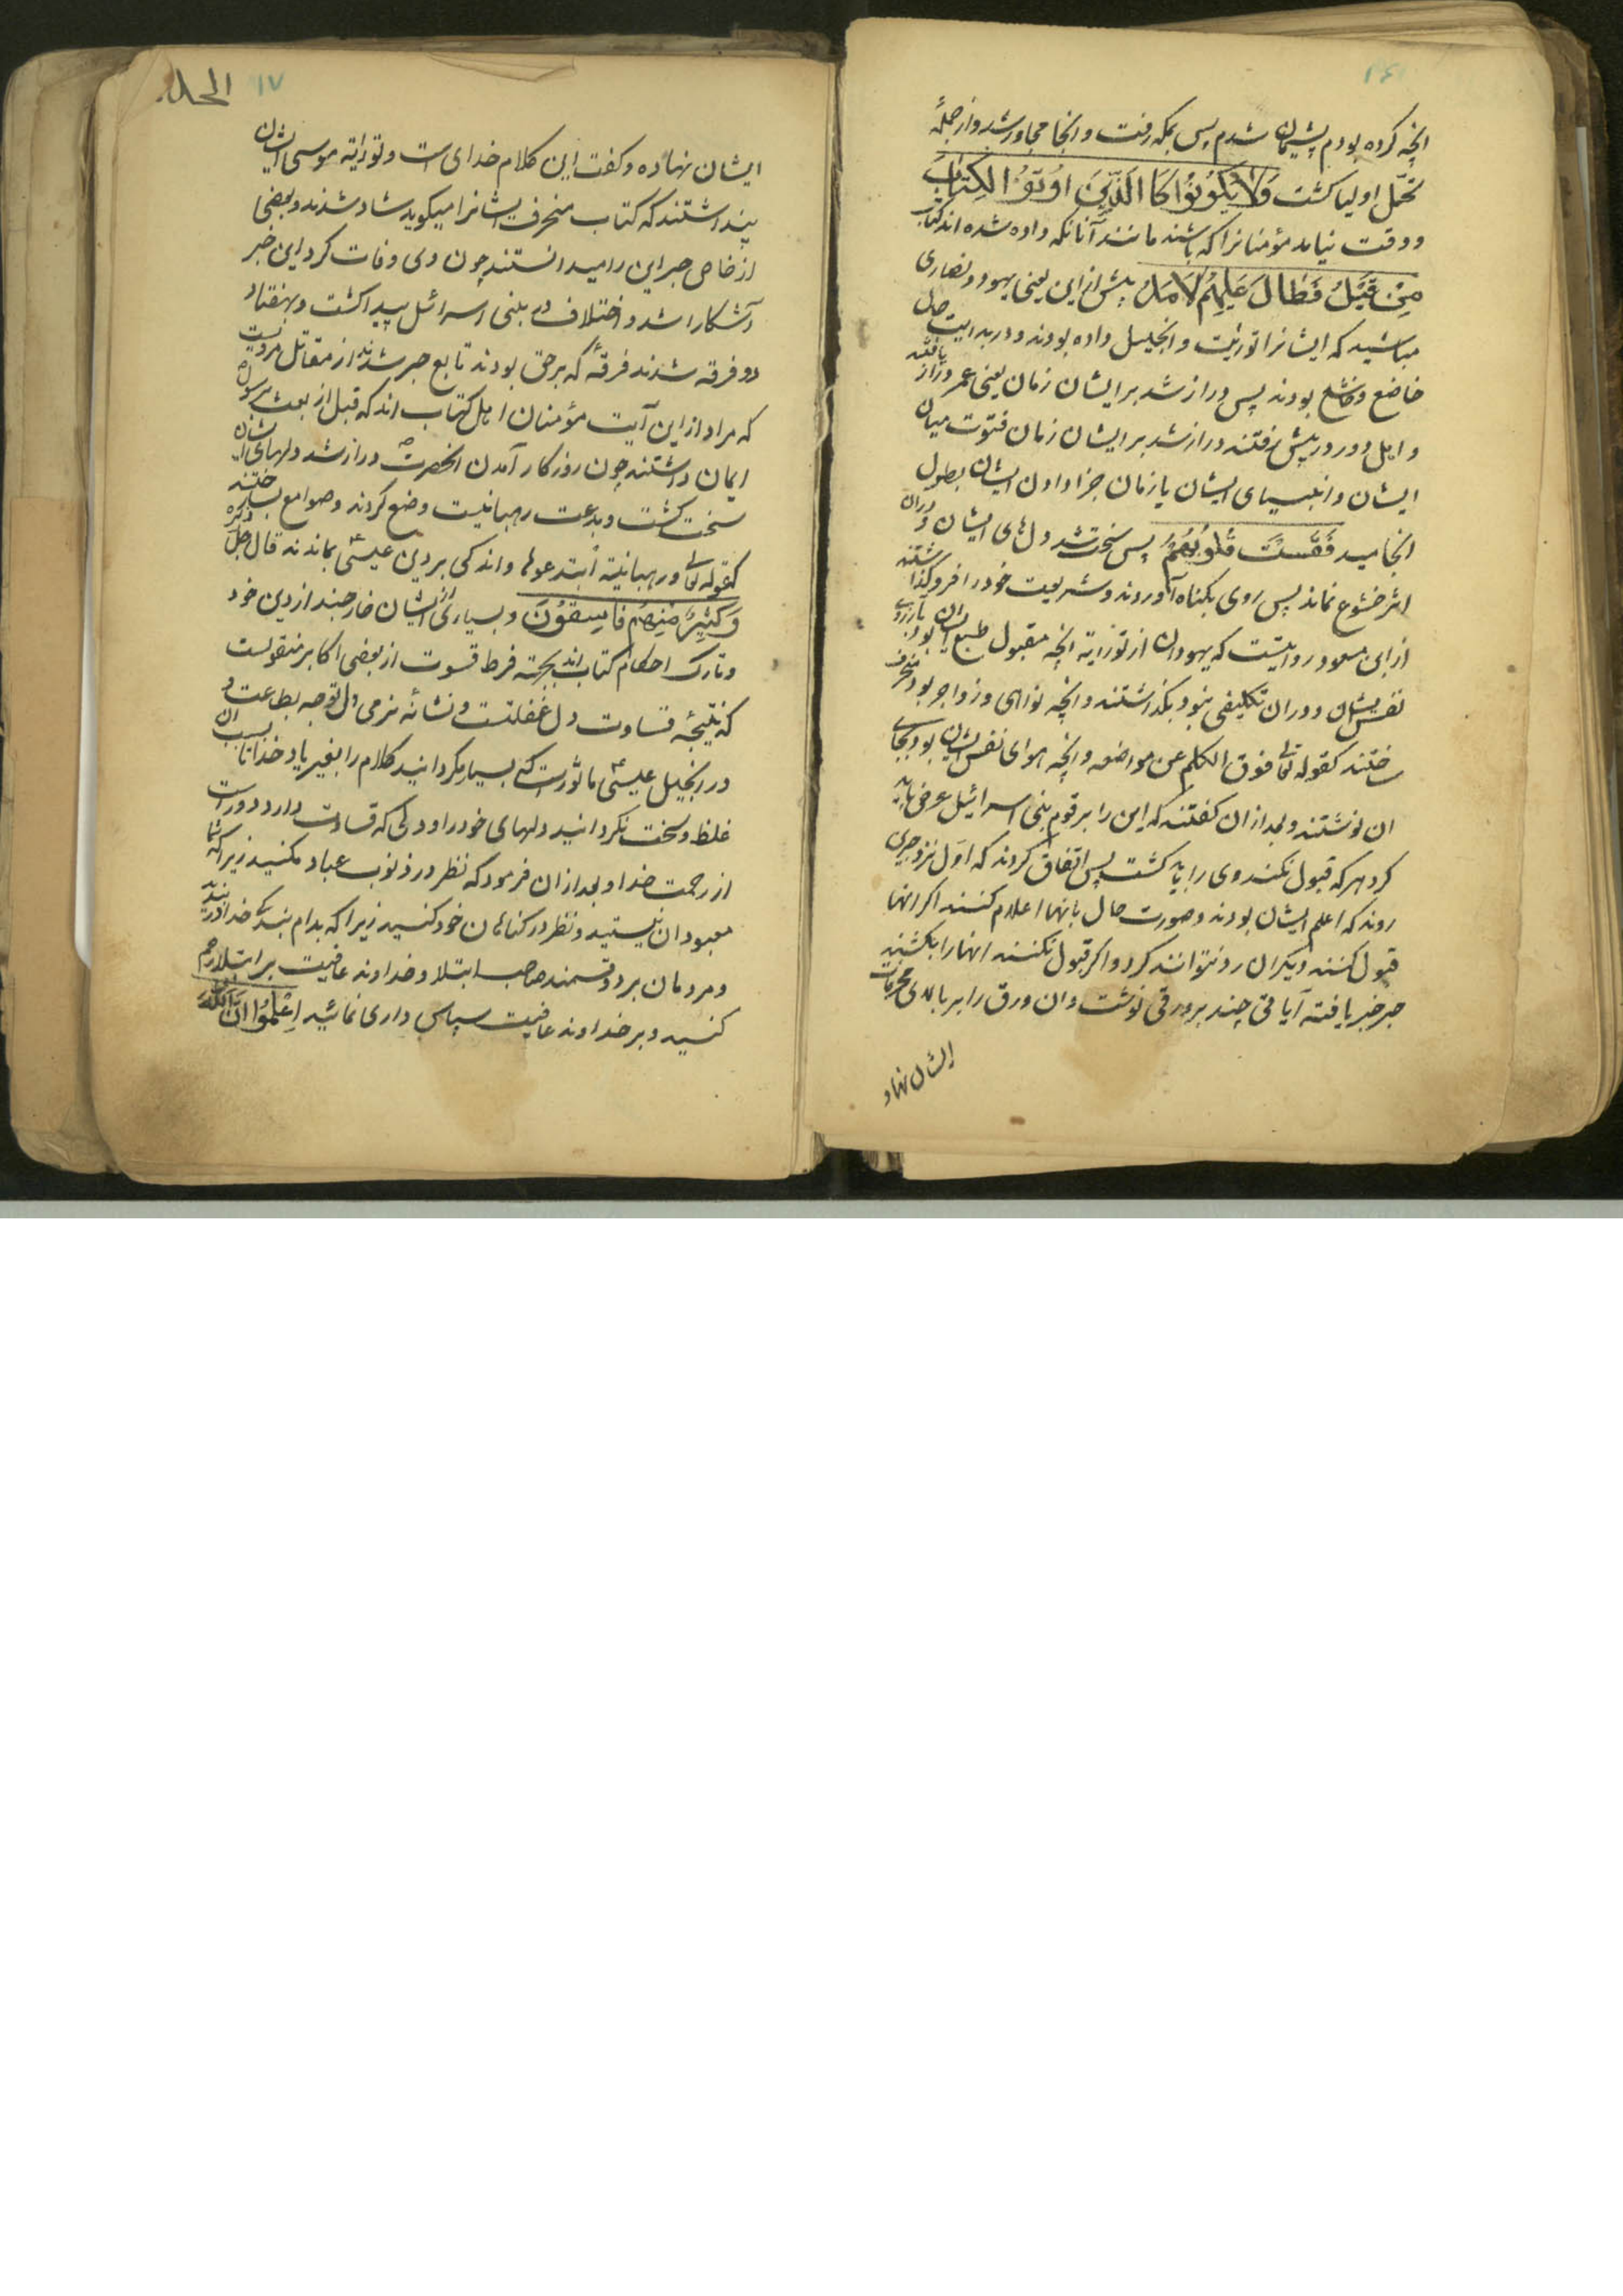 انچه کرده بودم پشیمان شدم پس بمکه رفت و انجا مجاور شد و از جملهٔ
کمّل اولیا کشت وَلَا یَکُونُوا کَا الَّذِینَ اُوتُوْا لکِتابَ
و وقت نیامد مؤمنانرا که باشند مانند آنانکه داده شده اند کتاب
مِنْ قَبْلُ فَطَالَ عَلَیهِمُ لاَمَدُ پیش از این یعنی یهود و نصاری
مباشید که ایشانرا توریت و انجیل داده بودند و در بدایت حال
خاضع و خاشع بودند پس دراز شد بر ایشان زمان یعنی عمر دراز یافتند
و امل دور و در پیش گرفتند دراز شد بر ایشان زمان فتوت میان
ایشان و انبیای ایشان یا زمان جزا دادن ایشان بطول
انجامید فَقَسَتْ قُلُوبُهُمْ پس سخت شد دل های ایشان و دران
اثر خشوع نماند پس روی بکناه آوردند و شریعت خود را فرو گذاشتند
از ابن مسعود روایتست که یهودان از توراية انچه مقبول طبع ایشان بود و بارزوی
نفس ایشان و دوران تکلیفی نبود بگذاشتند و انچه نواهی و زواجر بود منحرف
ساختند کقوله تعالی فوق الکلم عن مواضعه و انچه هوای نفس ایشان بود بجای
ان نوشتند و بعد از ان کفتند که این را بر قوم بنی اسرائیل عرض باید
کرد هر که قبول نکند وی را باید کشت پس اتفاق کردند که اوّل نزد حبری
روند که اعلم ایشان بودند و صورت حال بانها اعلام کنند اکر انها
قبول کنند دیکران رد نتوانند کرد و اکر قبول نکنند انها را بکشند
حبر خبر یافته آیاتی چند بر ورقی نوشت و ان ورق را بر بالای محرفات
ایشان نهاد
۱۷
ایشان نهاده و کفت این کلام خدای است و توراية موسی ایشان
پنداشتند که کتاب منحرف ایشانرا میکوید شاد شدند و بعضی
از خاص حبر این را میدانستند چون وی وفات کرد این خبر
آشکارا شد و اختلاف در بنی اسرائیل پیدا کشت و بهفتاد
دو فرقه شدند فرقهٔ که برحق بودند تابع حبر شدند از مقاتل مرویست
که مراد از این آیت مؤمنان اهل کتاب اند که قبل از بعث رسول
ایمان داشتند چون روزکار آمدن انحضرت ص دراز شد دلهای ایشان
سخت کشت و بدعت رهبانیت وضع کردند و صوامع ساختند
کقوله تعالی و رهبانیة ابتدعوها و اندکی بر دین عیسی ع بماندند قال جل ذکره
وَکَثِیرٌ مِنهُم فَاسِقوُنَ و بسیاری از ایشان خارجند از دین خود
و تارک احکام کتاب اند بجهة فرط قسوت از بعضی اکابر منقولست
که نتیجهٔ قساوت دل غفلتست و نشانهٔ نرمی دل توجه بطاعت و
در انجیل عیسی ع ماثورست که بسیار مکردانید کلام را بغیر یاد خدا تا بسبب ان
غلظ و سخت نکردانید دلهای خود را و دلی که قساوت دارد دور است
از رحمت خدا و بعد از ان فرمود که نظر در ذنوب عباد مکنید زیرا که شما
معبودان نیستید و نظر در کناهان خود کنید زیرا که بدام بندکی خدا دربندید
و مردمان بر دو قسمند صاحب ابتلا و خداوند عافیت بر ابتلا رحم
کنید و بر خداوند عافیت سپاس داری نمائید اِعْلَمُوا اَنَّ اللّٰهَ